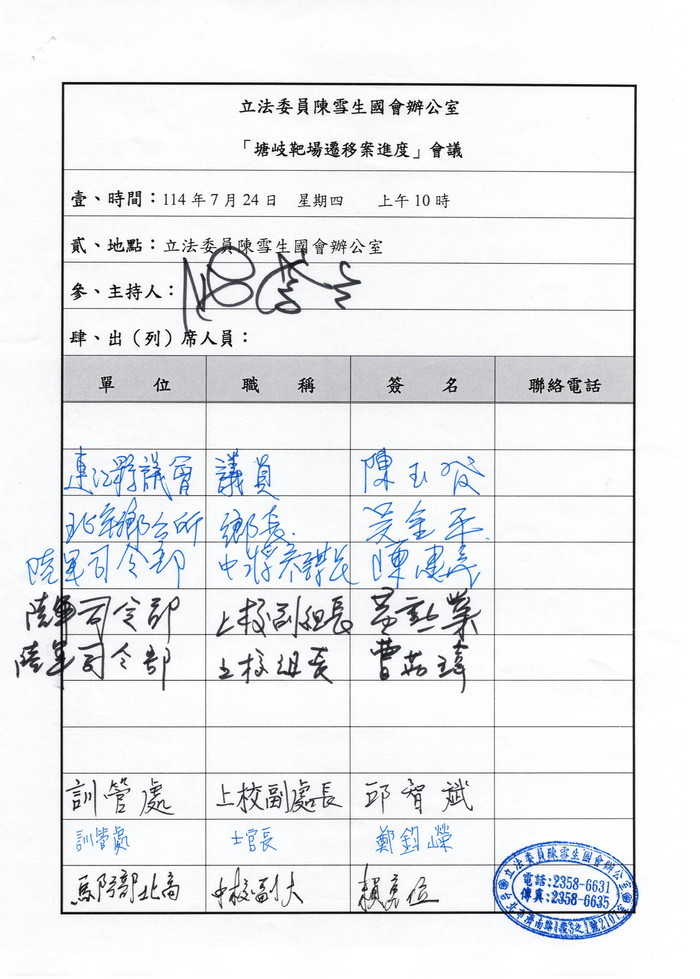 立法委員陳雪生國會辦公室
「塘岐靶場遷移案進度」會議
壹、時間：114年7月24日 星期四 上午10時
貳、地點：立法委員陳雪生國會辦公室
參、主持人：
肆、出（列）席人員：
單 位 職 稱 簽 名 聯絡電話
連江縣議會 議員 陳玉發
北竿鄉公所 鄉長 吳金平
陸軍司令部 中將參謀長 陳建義
陸軍司令部 上校副組長 黃勳業
陸軍司令部 上校組長 曹
訓管處 上校副處長 邱智斌
訓管處 士官長 鄭鈞嶸
馬防部北高 中校副大 賴
立法委員陳雪生國會辦公室
電話:2358-6631
傳真:2358-6635
台北市濟南路1段3之1號2107室